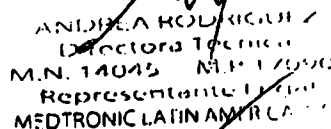 ANDREA RODRIGUEZ
Directora Técnica
M.N. 14045 M.P. 17090
Representante Legal
MEDTRONIC LATIN AMERICA